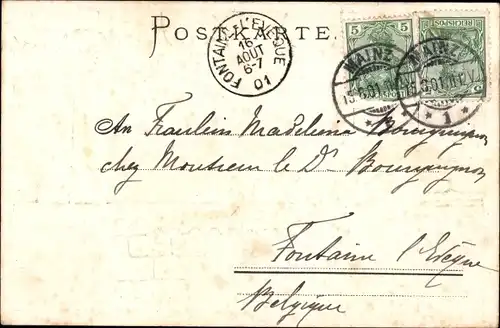 POSTKARTE.
FONTAINE-L'EVÊQUE
16
AOUT
6-7
01
5 5
REICHSPOST
MAINZ
MAINZ
* 1 *
An Fräulein Madeleine Bourguignon
chez Monsieur le Dr Bourguignon
Fontaine l'Evêque
Belgique